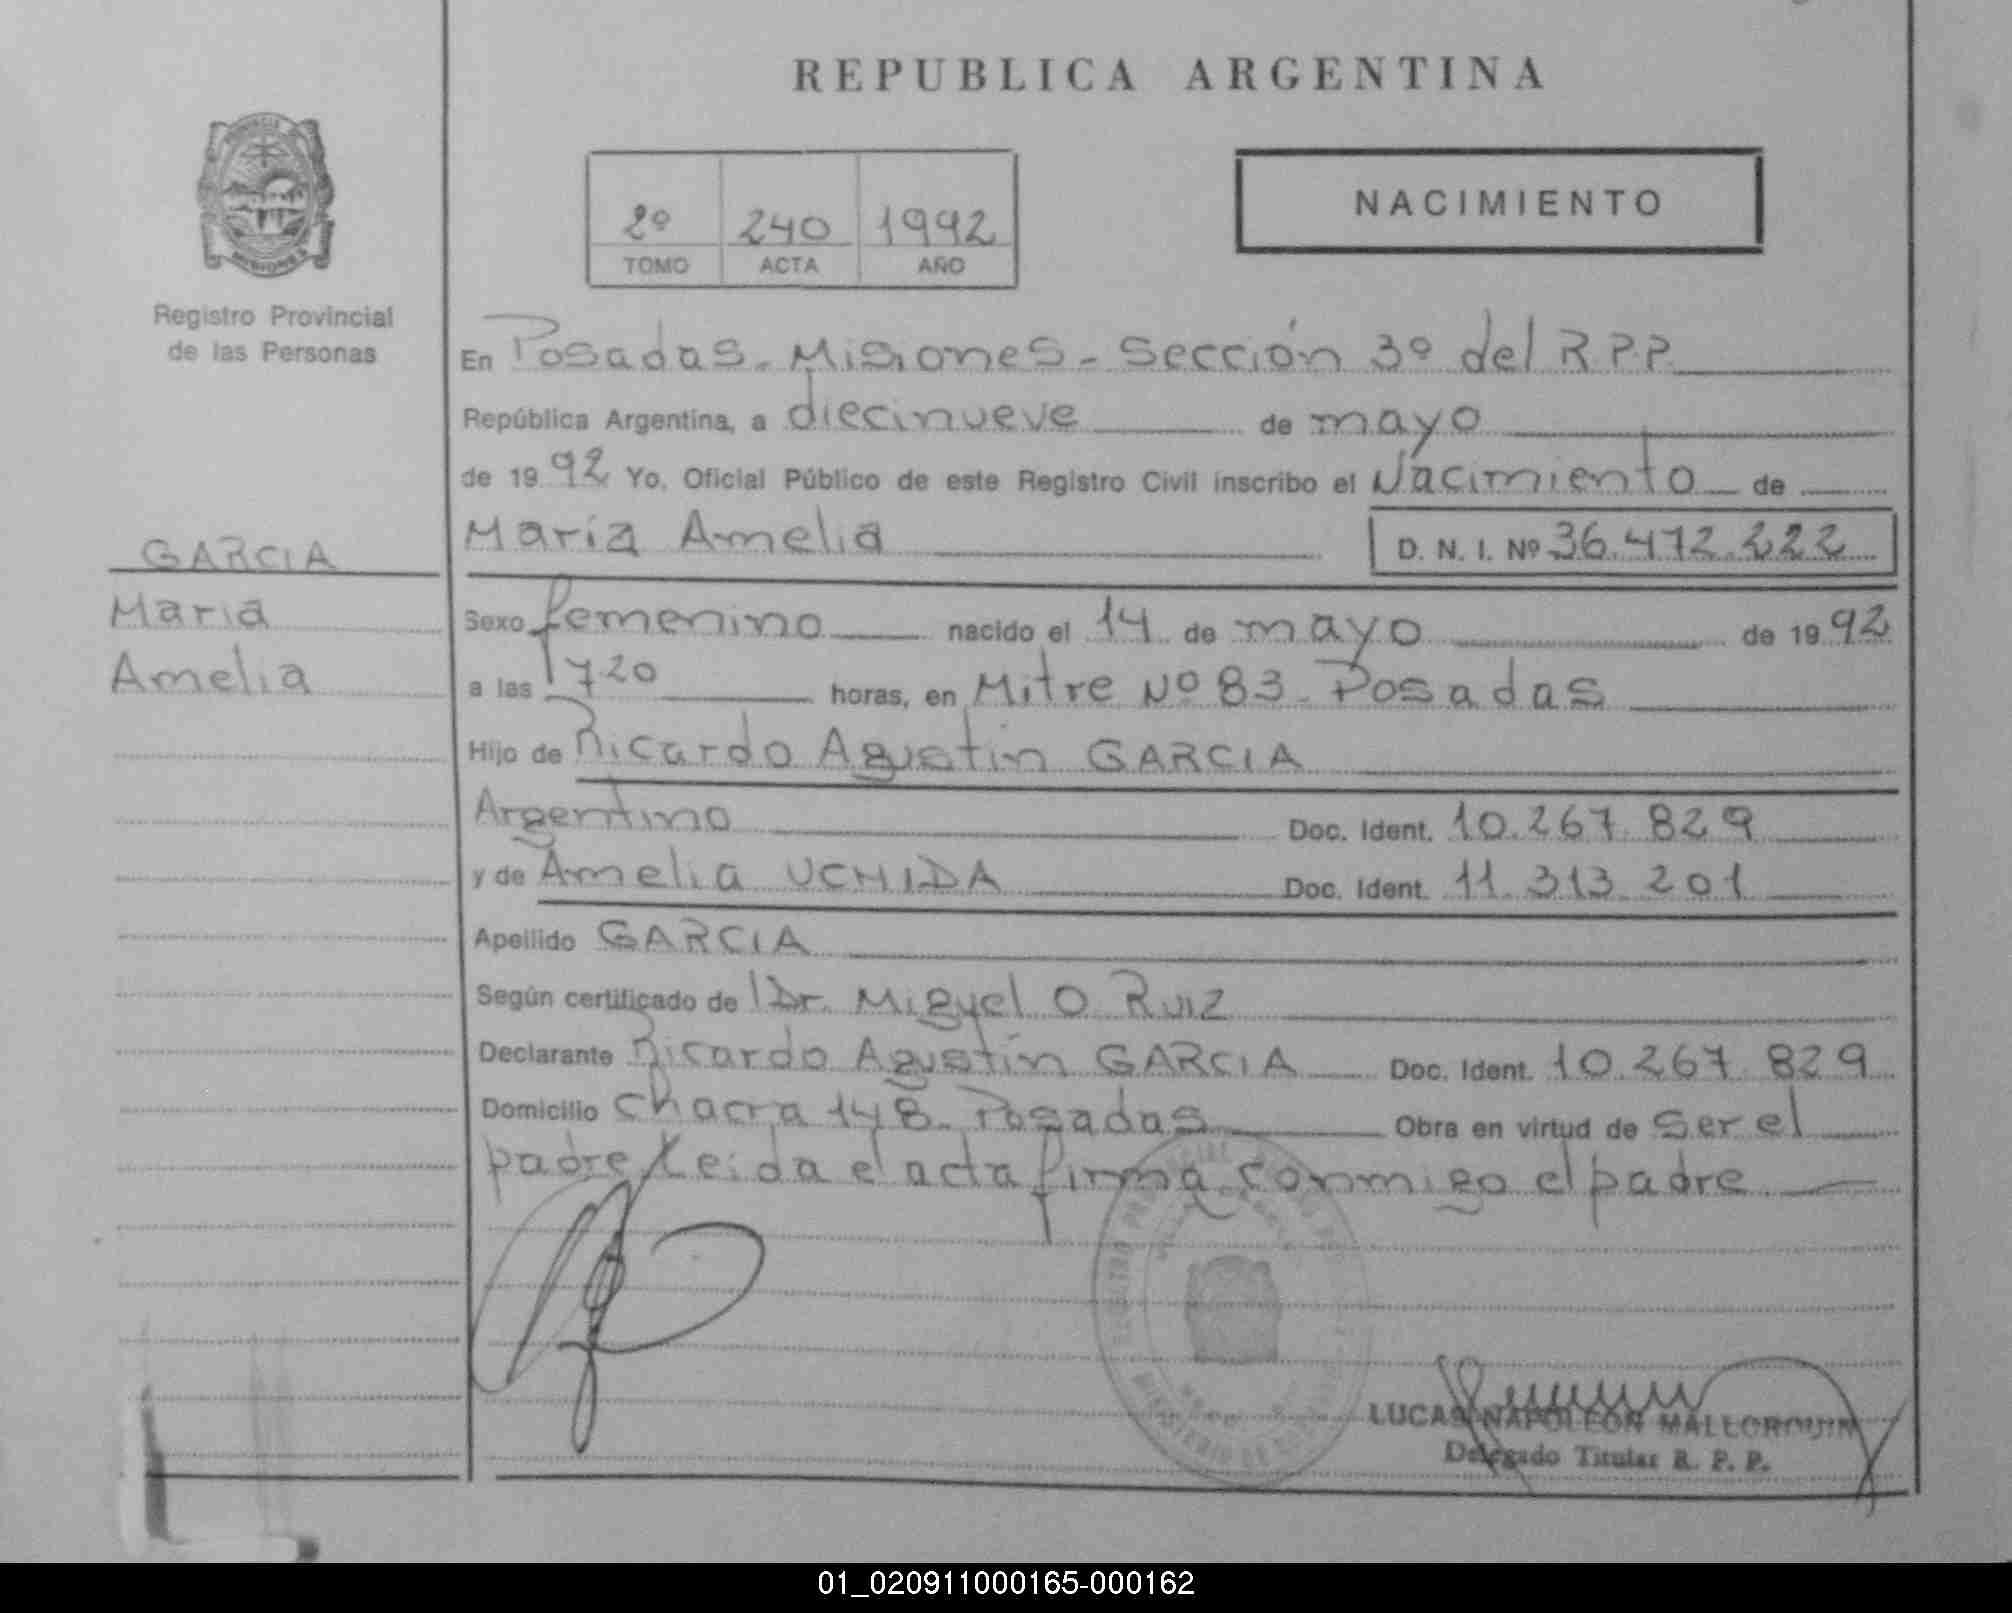 REPUBLICA ARGENTINA
PROVINCIA DE
MISIONES
Registro Provincial
de las Personas
2º 240 1992
TOMO ACTA AÑO
NACIMIENTO
En Posadas - Misiones - Sección 3º del R.P.P.
República Argentina, a diecinueve de mayo
de 1992 Yo, Oficial Público de este Registro Civil inscribo el Nacimiento de
María Amelia D. N. I. Nº 36.472.222
GARCIA
María
Amelia
Sexo femenino nacido el 14 de mayo de 1992
a las 1720 horas, en Mitre Nº 83 - Posadas
Hijo de Ricardo Agustín GARCIA
Argentino Doc. Ident. 10.267.829
y de Amelia UCHIDA Doc. Ident. 11.313.201
Apellido GARCIA
Según certificado de Dr. Miguel O. Ruiz
Declarante Ricardo Agustín GARCIA Doc. Ident. 10.267.829
Domicilio Chacra 148 - Posadas Obra en virtud de ser el
padre Leida el acta firma conmigo el padre
LUCAS NAPOLEON MALLORQUIN
Delegado Titular R. P. P.
01_020911000165-000162